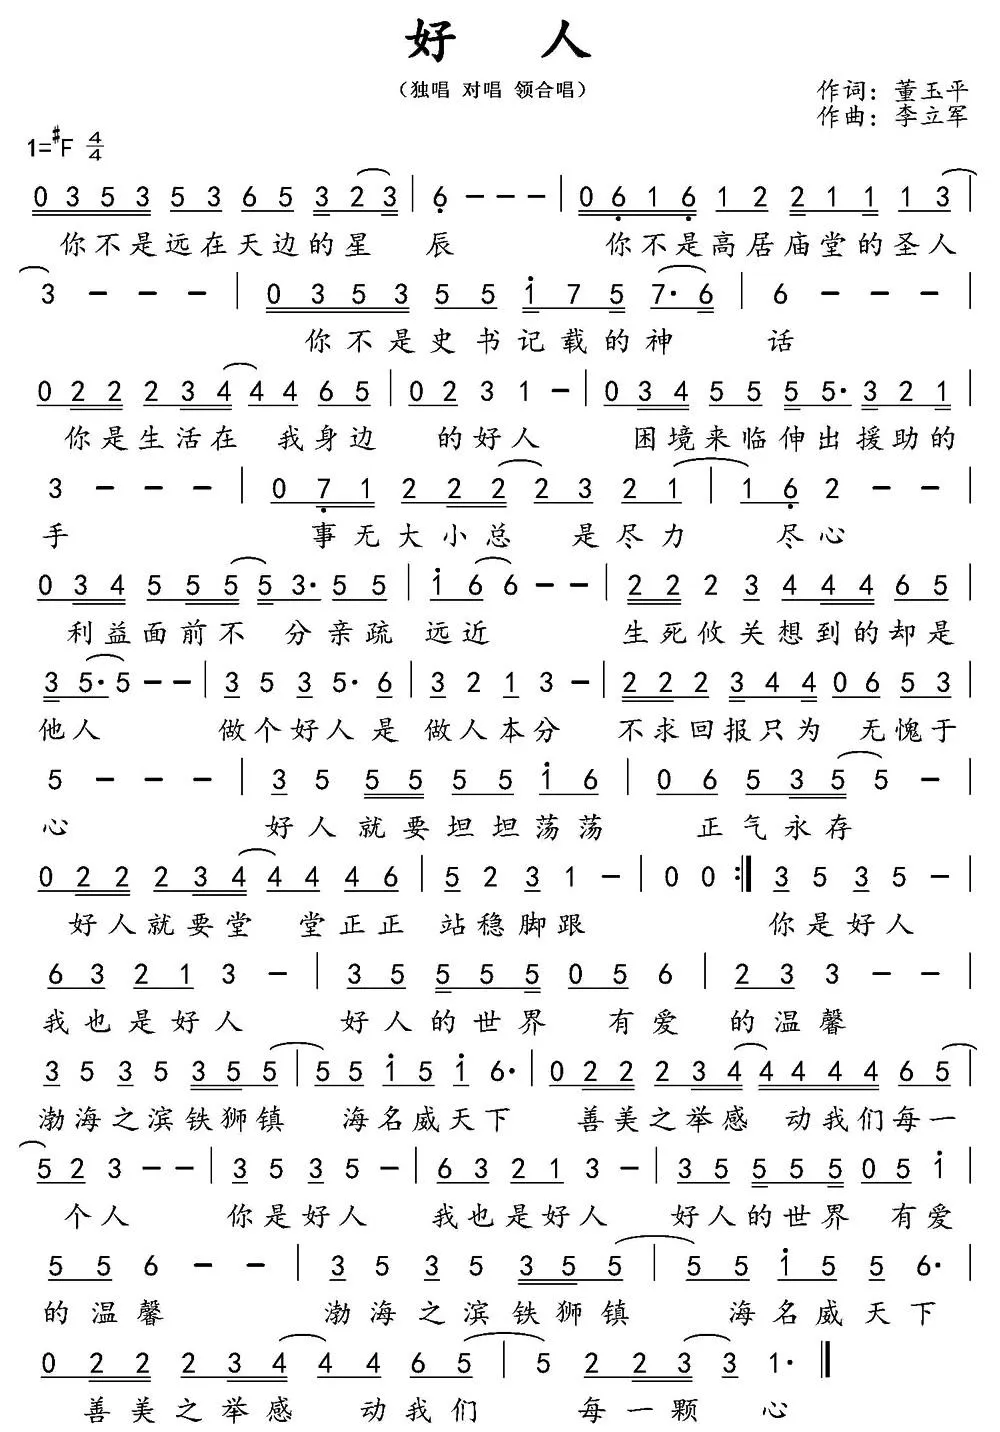 好 人
（独唱 对唱 领合唱）
作词：董玉平
作曲：李立军
1=#F 4/4
0 3 5 3 5 3 6 5 3 2 3 | 6 - - - | 0 6 1 6 1 2 2 1 1 1 3 |
你不是远在天边的星 辰 你不是高居庙堂的圣人
3 - - - | 0 3 5 3 5 5 i 7 5 7· 6 | 6 - - - |
你不是史书记载的神 话
0 2 2 2 3 4 4 4 6 5 | 0 2 3 1 - | 0 3 4 5 5 5 5· 3 2 1 |
你是生活在 我身边 的好人 困境来临伸出援助的
3 - - - | 0 7 1 2 2 2 2 3 2 1 | 1 6 2 - - |
手 事无大小总 是尽力 尽心
0 3 4 5 5 5 5 3· 5 5 | i 6 6 - - | 2 2 2 3 4 4 4 6 5 |
利益面前不 分亲疏 远近 生死攸关想到的却是
3 5· 5 - - | 3 5 3 5· 6 | 3 2 1 3 - | 2 2 2 3 4 4 0 6 5 3 |
他人 做个好人是 做人本分 不求回报只为 无愧于
5 - - - | 3 5 5 5 5 5 i 6 | 0 6 5 3 5 5 - |
心 好人就要坦坦荡荡 正气永存
0 2 2 2 3 4 4 4 4 6 | 5 2 3 1 - | 0 0 :| 3 5 3 5 - |
好人就要堂 堂正正 站稳脚跟 你是好人
6 3 2 1 3 - | 3 5 5 5 5 0 5 6 | 2 3 3 - - |
我也是好人 好人的世界 有爱 的温馨
3 5 3 5 3 5 5 | 5 5 i 5 i 6· | 0 2 2 2 3 4 4 4 4 4 6 5 |
渤海之滨铁狮镇 海名威天下 善美之举感 动我们每一
5 2 3 - - | 3 5 3 5 - | 6 3 2 1 3 - | 3 5 5 5 5 0 5 i |
个人 你是好人 我也是好人 好人的世界 有爱
5 5 6 - - | 3 5 3 5 3 5 5 | 5 5 i 5 5 6· |
的温馨 渤海之滨铁狮镇 海名威天下
0 2 2 2 3 4 4 4 6 5 | 5 2 2 3 3 1· ‖
善美之举感 动我们 每一颗 心